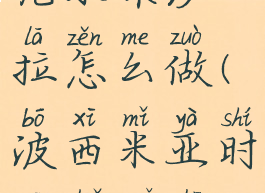 lā zěn me zuò
拉怎么做(
bō xī mǐ yà shí
波西米亚时